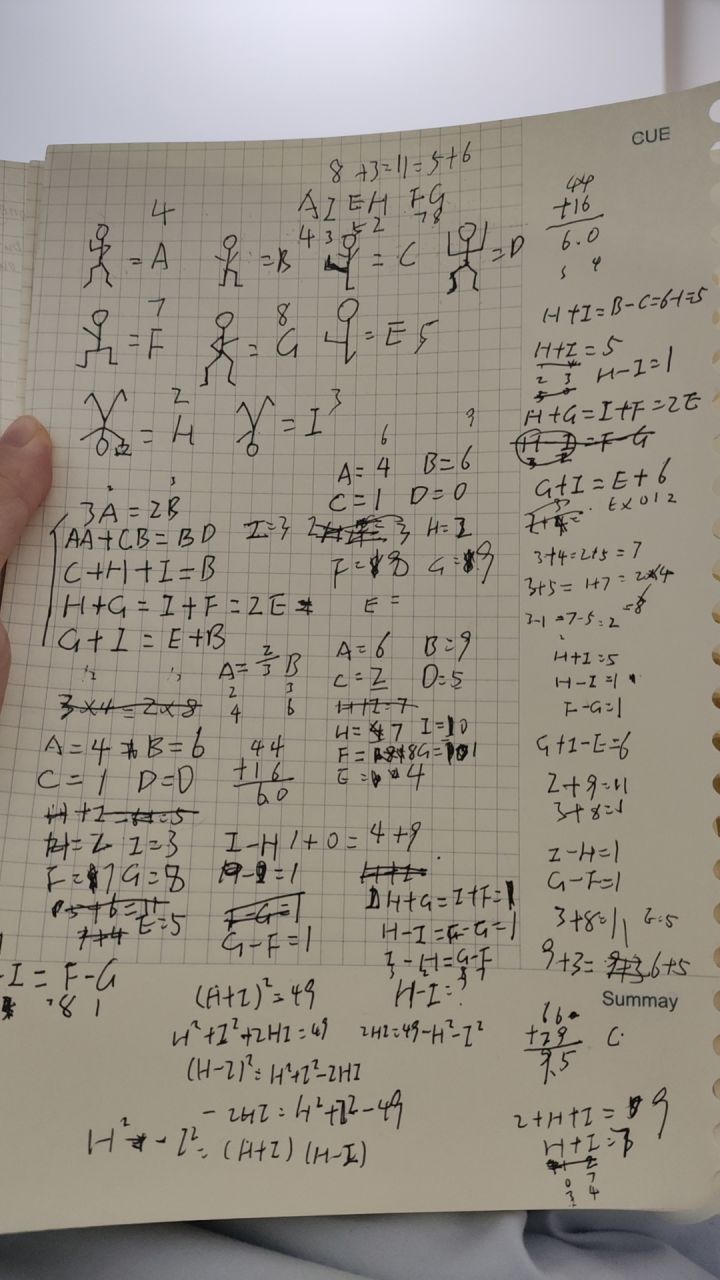 CUE
8 +3=11=5+6
A I E H F G
4 3 5 2 7 8
4
= A
= B
= C
= D
7
= F
8
= G
= E 5
2
= H
3
= I
44
+16
6.0
H+I=B-C=6-1=5
H+I=5
2 3
H-I=1
H+G=I+F=2E
G+I=E+6
3+4=2+5=7
3+5= 1+7=2×4
=8
3-1=7-5=2
H+I=5
H-I=1
F-G=1
G+I-E=6
2+9=11
I-H=1
G-F=1
3+8=11
E=5
9+3= 6+5
A=4 B=6
C=1 D=0
3A=2B
AA+CB=BD
C+H+I=B
H+G=I+F=2E
G+I=E+B
I=3
E=
A=2/3 B
2 3
4 6
3×4=2×8
A=6 B=9
C=2 D=5
A=4 B=6
C=1 D=0
44
+16
60
H=2 I=3
F=7 G=8
E=5
I-H 1+0=4+9
G-F=1
H+G=I+F=
H-I=F-G=1
I-H=G-F
H-I=?
-I=F-G
8 1
(H+I)²=49
H²+I²+2HI=49
2HI=49-H²-I²
(H-I)²=H²+I²-2HI
-2HI=H²+I²-49
H²-I²=(H+I)(H-I)
Summay
66
+29
9.5
C
2+H+I=9
H+I=7
0 7
3 4